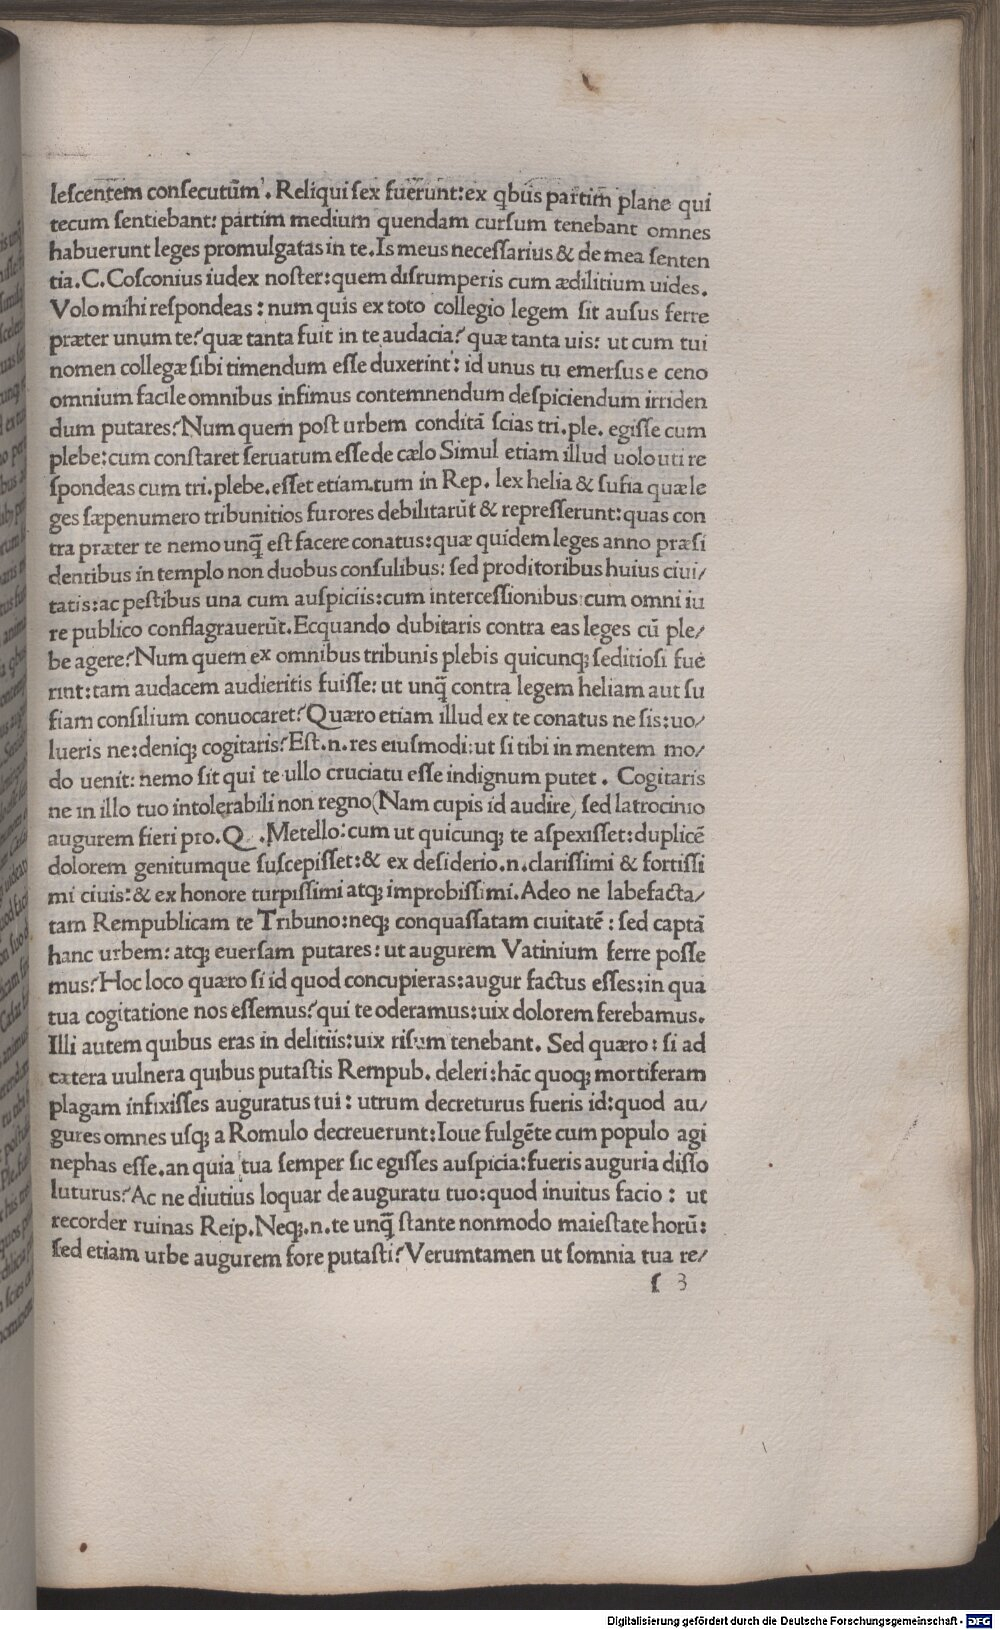 leſcentem conſecutūm. Reliqui ſex fuerunt: ex qbus partim plane qui
tecum ſentiebant: partim medium quendam curſum tenebant omnes
habuerunt leges promulgatas in te. Is meus neceſſarius & de mea ſenten
tia. C. Coſconius iudex noſter: quem diſrumperis cum ædilitium uides.
Volo mihi reſpondeas: num quis ex toto collegio legem ſit auſus ferre
præter unum te? quæ tanta fuit in te audacia? quæ tanta uis: ut cum tui
nomen collegæ ſibi timendum eſſe duxerint: id unus tu emerſus e ceno
omnium facile omnibus infimus contemnendum deſpiciendum irriden
dum putares? Num quem poſt urbem conditā ſcias tri. ple. egiſſe cum
plebe: cum conſtaret ſeruatum eſſe de cælo Simul etiam illud uolo uti re
ſpondeas cum tri. plebe. eſſet etiam tum in Rep. lex helia & fufia quæ le
ges ſæpenumero tribunitios furores debilitarūt & repreſſerunt: quas con
tra præter te nemo unq̄ eſt facere conatus: quæ quidem leges anno præſi
dentibus in templo non duobus conſulibus: ſed proditoribus huius ciui/
tatis: ac peſtibus una cum auſpiciis: cum interceſſionibus: cum omni iu
re publico conflagrauerūt. Ecquando dubitaris contra eas leges cū ple/
be agere? Num quem ex omnibus tribunis plebis quicunq; ſeditioſi fue
rint: tam audacem audieritis fuiſſe: ut unq̄ contra legem heliam aut fu
fiam conſilium conuocaret? Quæro etiam illud ex te conatus ne ſis: uo/
lueris ne: deniq; cogitaris? Eſt. n. res eiuſmodi: ut ſi tibi in mentem mo/
do uenit: nemo ſit qui te ullo cruciatu eſſe indignum putet. Cogitaris
ne in illo tuo intolerabili non regno (Nam cupis id audire) ſed latrocinio
augurem fieri pro. Q. Metello: cum ut quicunq; te aſpexiſſet: duplicē
dolorem genitumque ſuſcepiſſet: & ex deſiderio. n. clariſſimi & fortiſſi
mi ciuis: & ex honore turpiſſimi atq; improbiſſimi. Adeo ne labefacta/
tam Rempublicam te Tribuno: neq; conquaſſatam ciuitatē: ſed captā
hanc urbem: atq; euerſam putares: ut augurem Vatinium ferre poſſe
mus? Hoc loco quæro ſi id quod concupieras: augur factus eſſes: in qua
tua cogitatione nos eſſemus? qui te oderamus: uix dolorem ferebamus.
Illi autem quibus eras in delitiis: uix riſum tenebant. Sed quæro: ſi ad
cætera uulnera quibus putaſtis Rempub. deleri: hāc quoq; mortiferam
plagam infixiſſes auguratus tui: utrum decreturus fueris id: quod au/
gures omnes uſq; a Romulo decreuerunt: Ioue fulgēte cum populo agi
nephas eſſe. an quia tua ſemper ſic egiſſes auſpicia: fueris auguria diſſo
luturus? Ac ne diutius loquar de auguratu tuo: quod inuitus facio: ut
recorder ruinas Reip. Neq;. n. te unq̄ ſtante nonmodo maieſtate horū:
ſed etiam urbe augurem fore putaſti? Verumtamen ut ſomnia tua re/
ſ 3
Digitalisierung gefördert durch die Deutsche Forschungsgemeinschaft - DFG